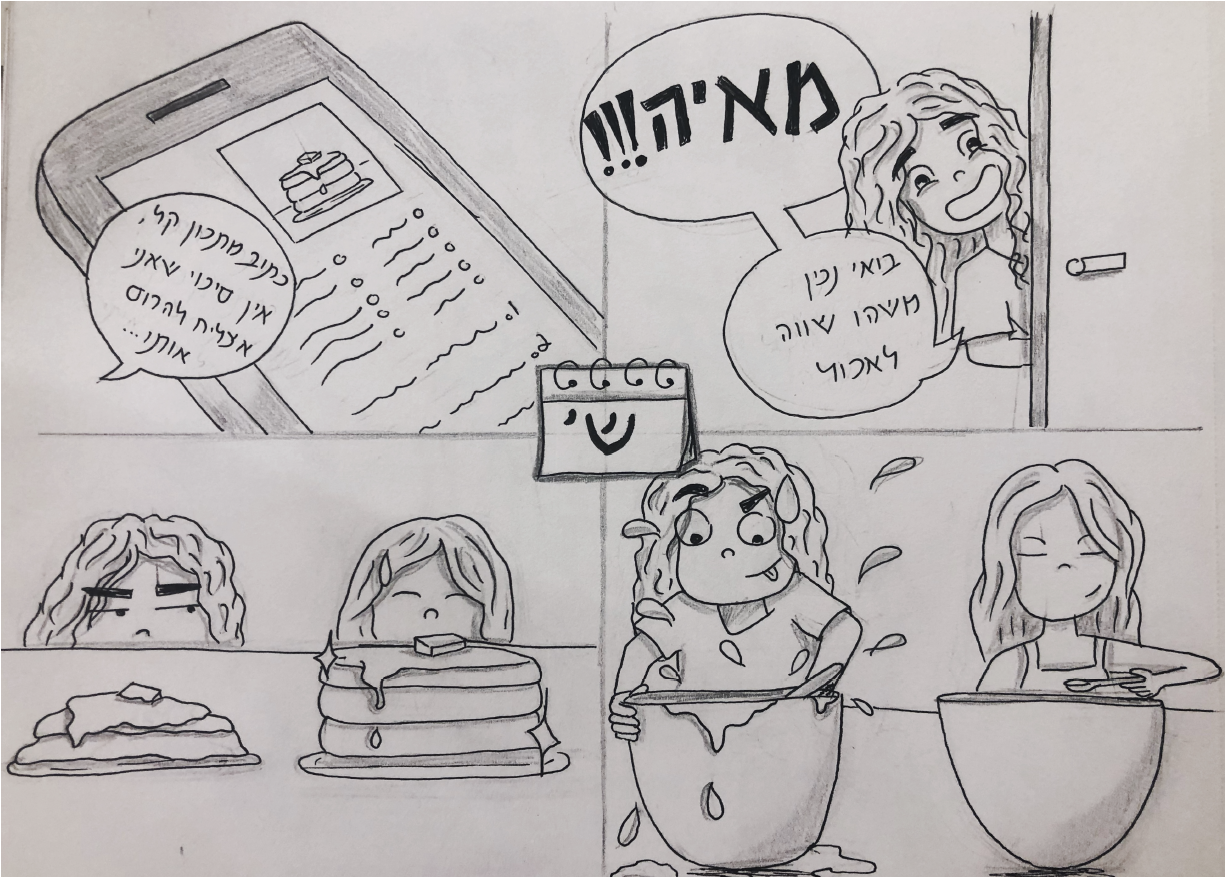 מאיה!!!
בואי נכין
משהו שווה
לאכול
כתוב מתכון קל,
אין סיכוי שאני
אצליח להרוס
אותו...
1.
2.
שי